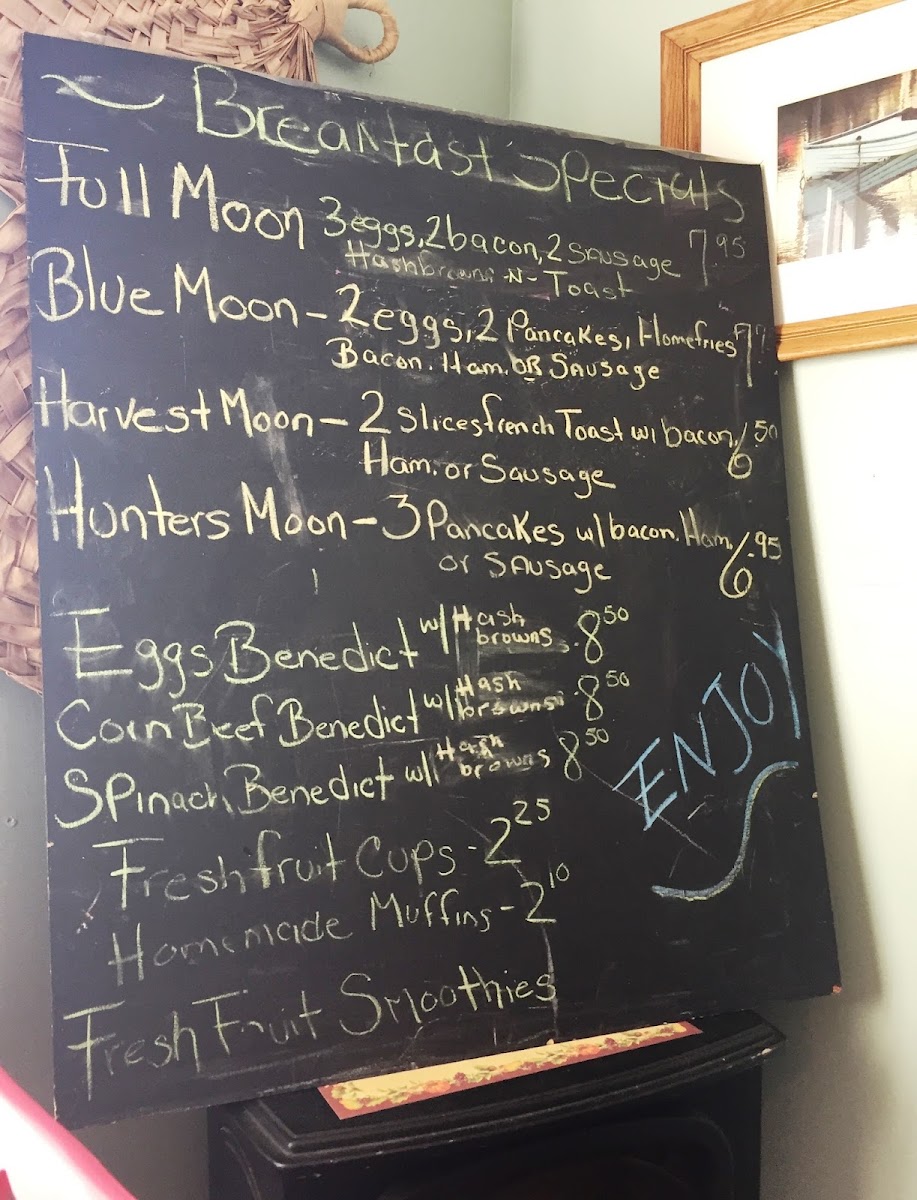 ~ Breakfast Specials
Full Moon 3 eggs, 2 bacon, 2 sausage 7.95
Hashbrowns -N- Toast
Blue Moon - 2 eggs, 2 Pancakes, Homefries
Bacon. Ham. OR Sausage
Harvest Moon - 2 slices french Toast w/ bacon, 6 50
Ham. or Sausage
Hunters Moon - 3 Pancakes w/ bacon. Ham, 6.95
or Sausage
Eggs Benedict w/ Hash browns 8 50
Corn Beef Benedict w/ Hash browns 8 50
Spinach Benedict w/ Hash browns 8 50
ENJOY
Fresh fruit Cups - 2 25
Homemade Muffins - 2 10
Fresh Fruit Smoothies